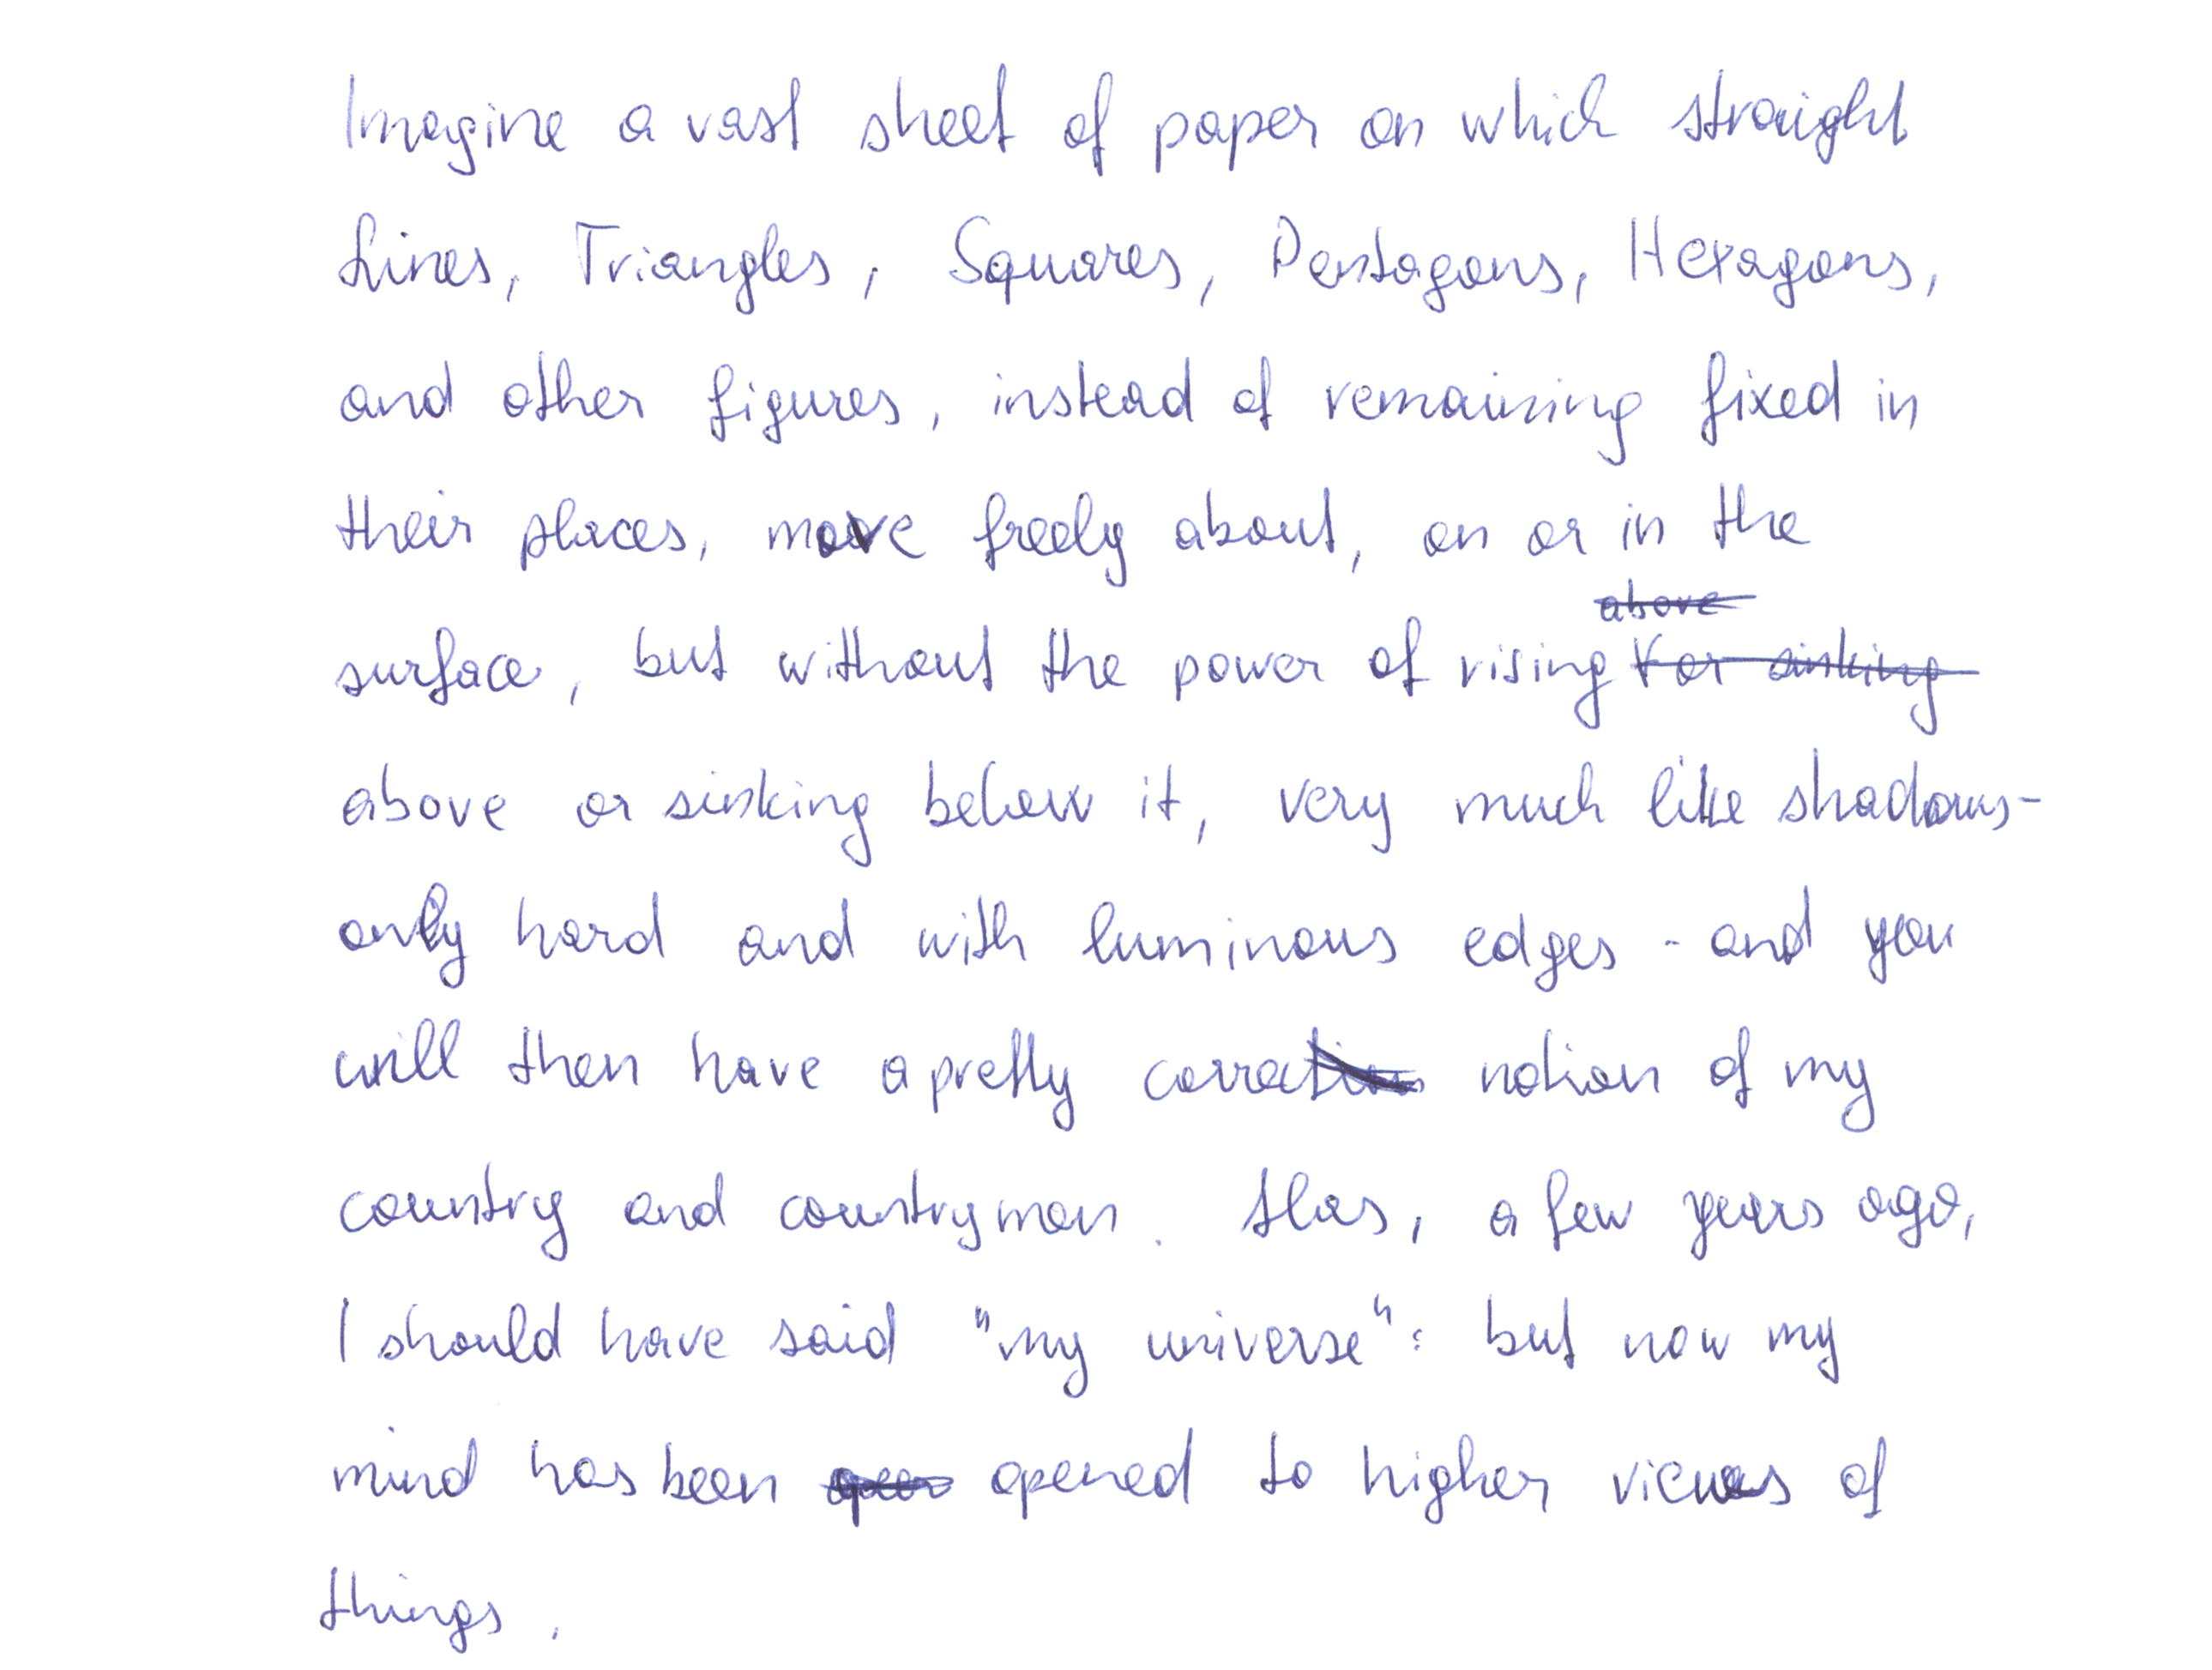 Imagine a vast sheet of paper on which straight
Lines, Triangles, Squares, Pentagons, Hexagons,
and other figures, instead of remaining fixed in
their places, move freely about, on or in the
above
surface, but without the power of rising or sinking
above or sinking below it, very much like shadows-
only hard and with luminous edges - and you
will then have a pretty correct notion of my
country and countrymen. Alas, a few years ago,
I should have said "my universe": but now my
mind has been opened to higher views of
things.